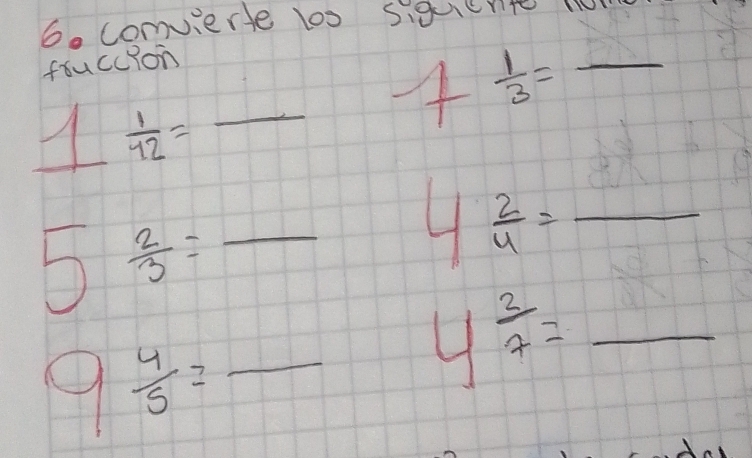 6. convierte los siguiente
fracción
1 1/12 = ___
7 1/3 = ___
5 2/3 = ___
4 2/4 = ___
9 4/5 = ___
4 2/7 = ___